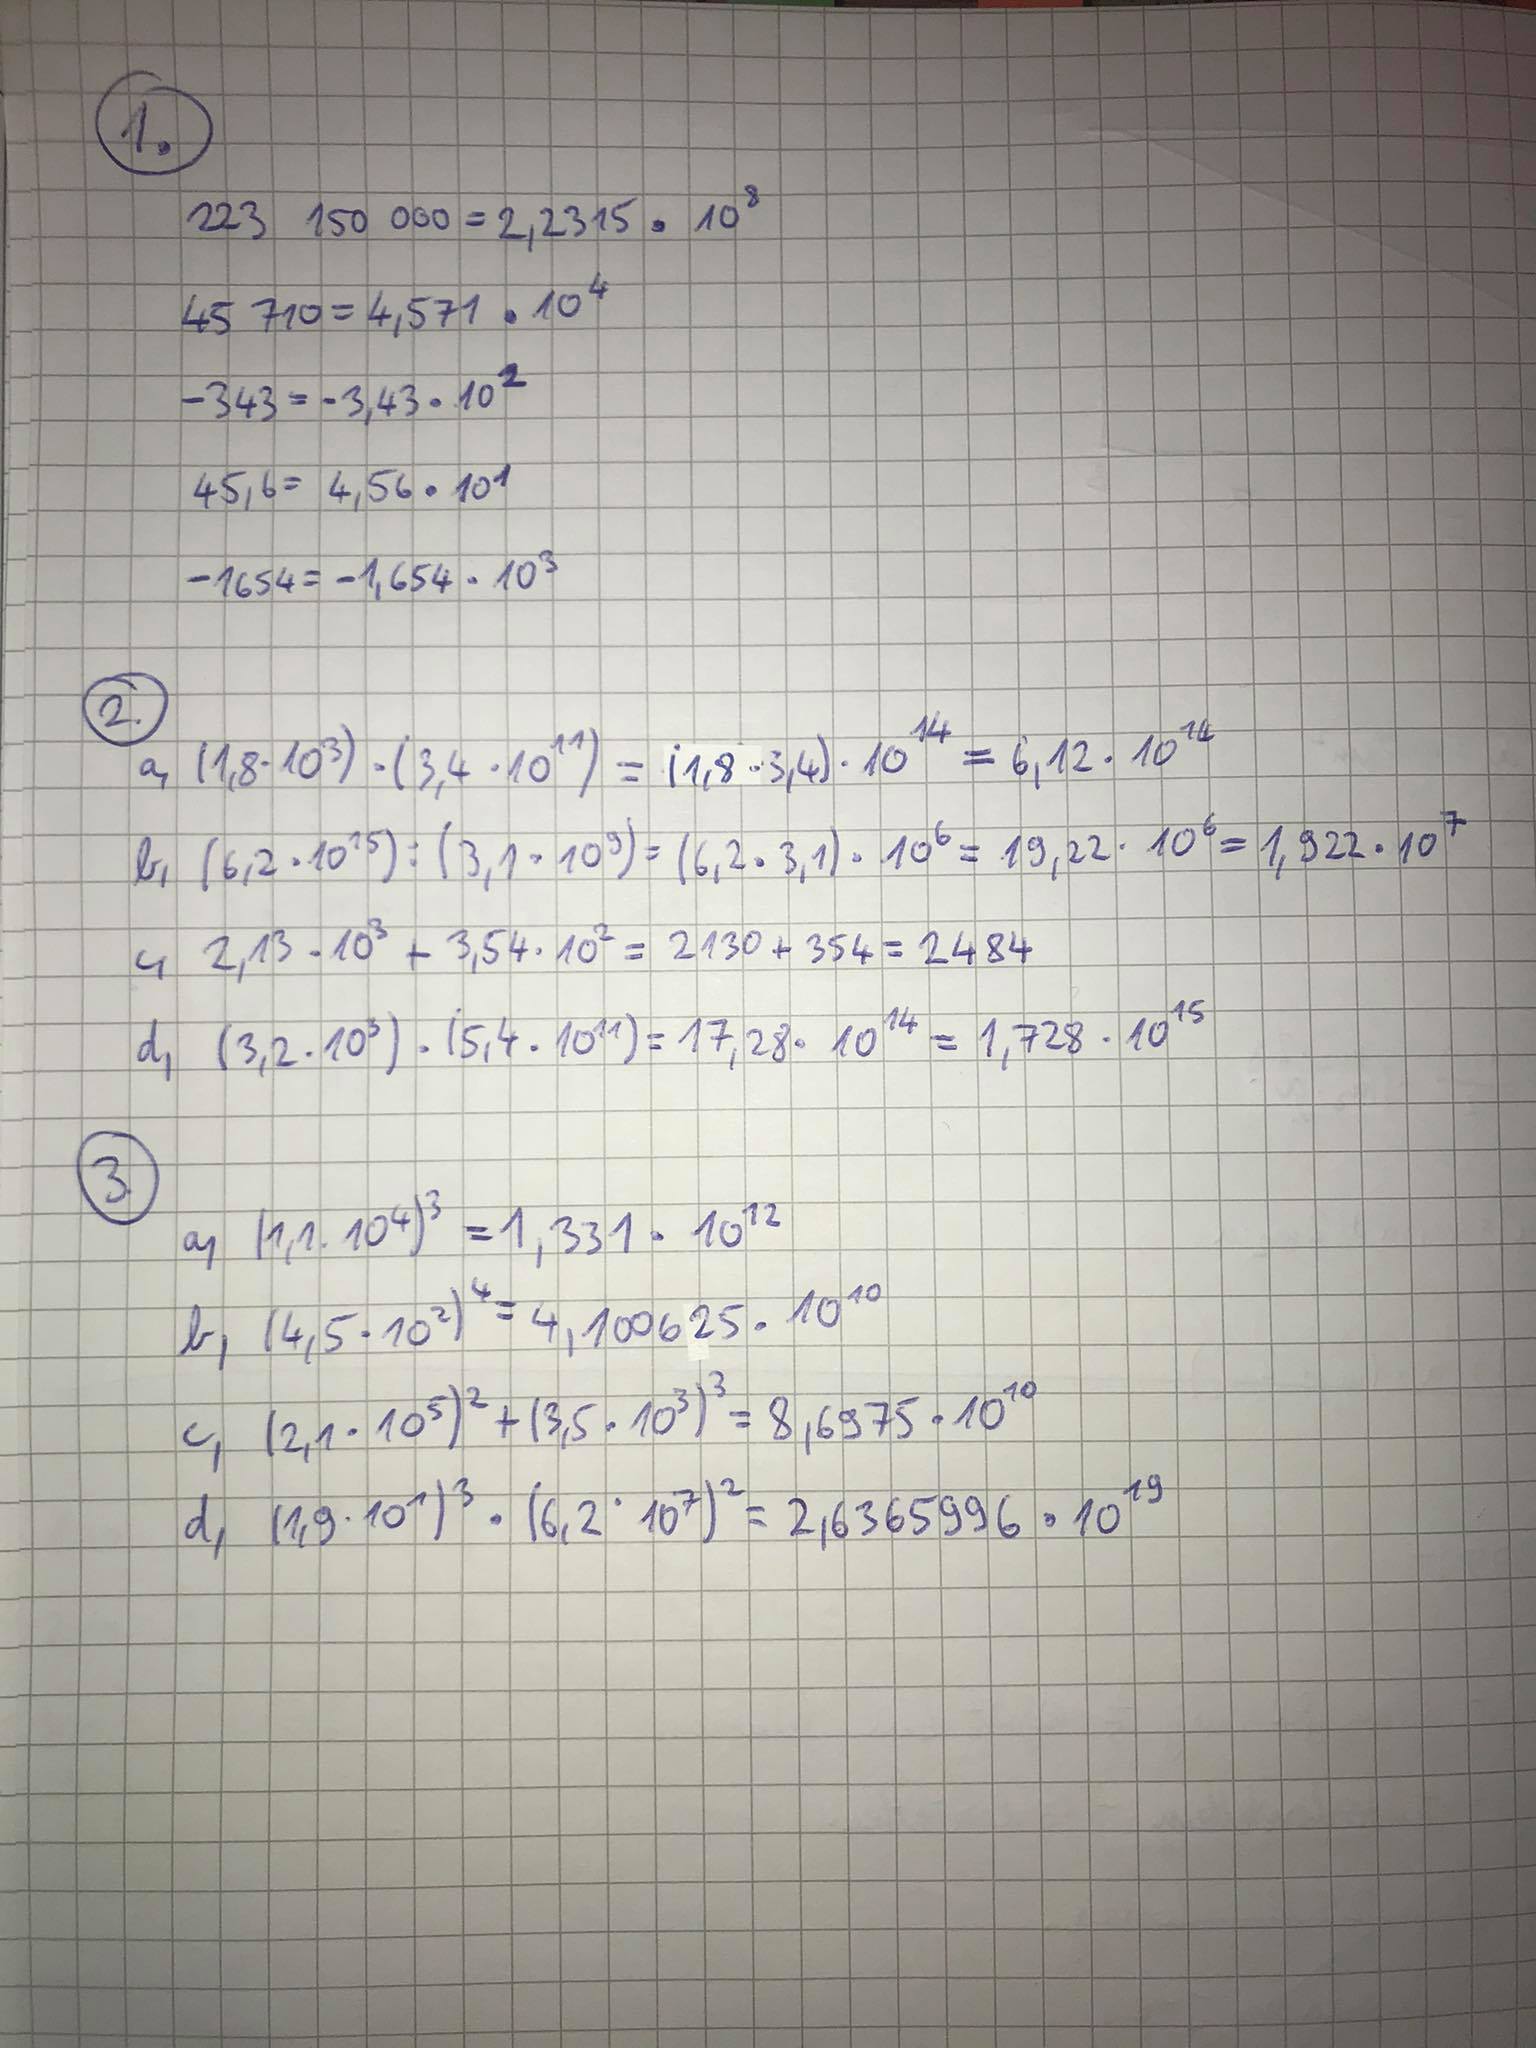 1.
223 150 000 = 2,2315 · 10⁸
45 710 = 4,571 · 10⁴
-343 = -3,43 · 10²
45,6 = 4,56 · 10¹
-1654 = -1,654 · 10³
2.
a, (1,8 · 10³) · (3,4 · 10¹¹) = (1,8 · 3,4) · 10¹⁴ = 6,12 · 10¹⁴
b, (6,2 · 10¹⁵) : (3,1 · 10⁹) = (6,2 · 3,1) · 10⁶ = 19,22 · 10⁶ = 1,922 · 10⁷
c, 2,13 · 10³ + 3,54 · 10² = 2130 + 354 = 2484
d, (3,2 · 10³) · (5,4 · 10¹¹) = 17,28 · 10¹⁴ = 1,728 · 10¹⁵
3.
a, (1,1 · 10⁴)³ = 1,331 · 10¹²
b, (4,5 · 10²)⁴ = 4,100625 · 10¹⁰
c, (2,1 · 10⁵)² + (3,5 · 10³)³ = 8,6975 · 10¹⁰
d, (1,9 · 10¹)³ · (6,2 · 10⁷)² = 2,6365996 · 10¹⁹